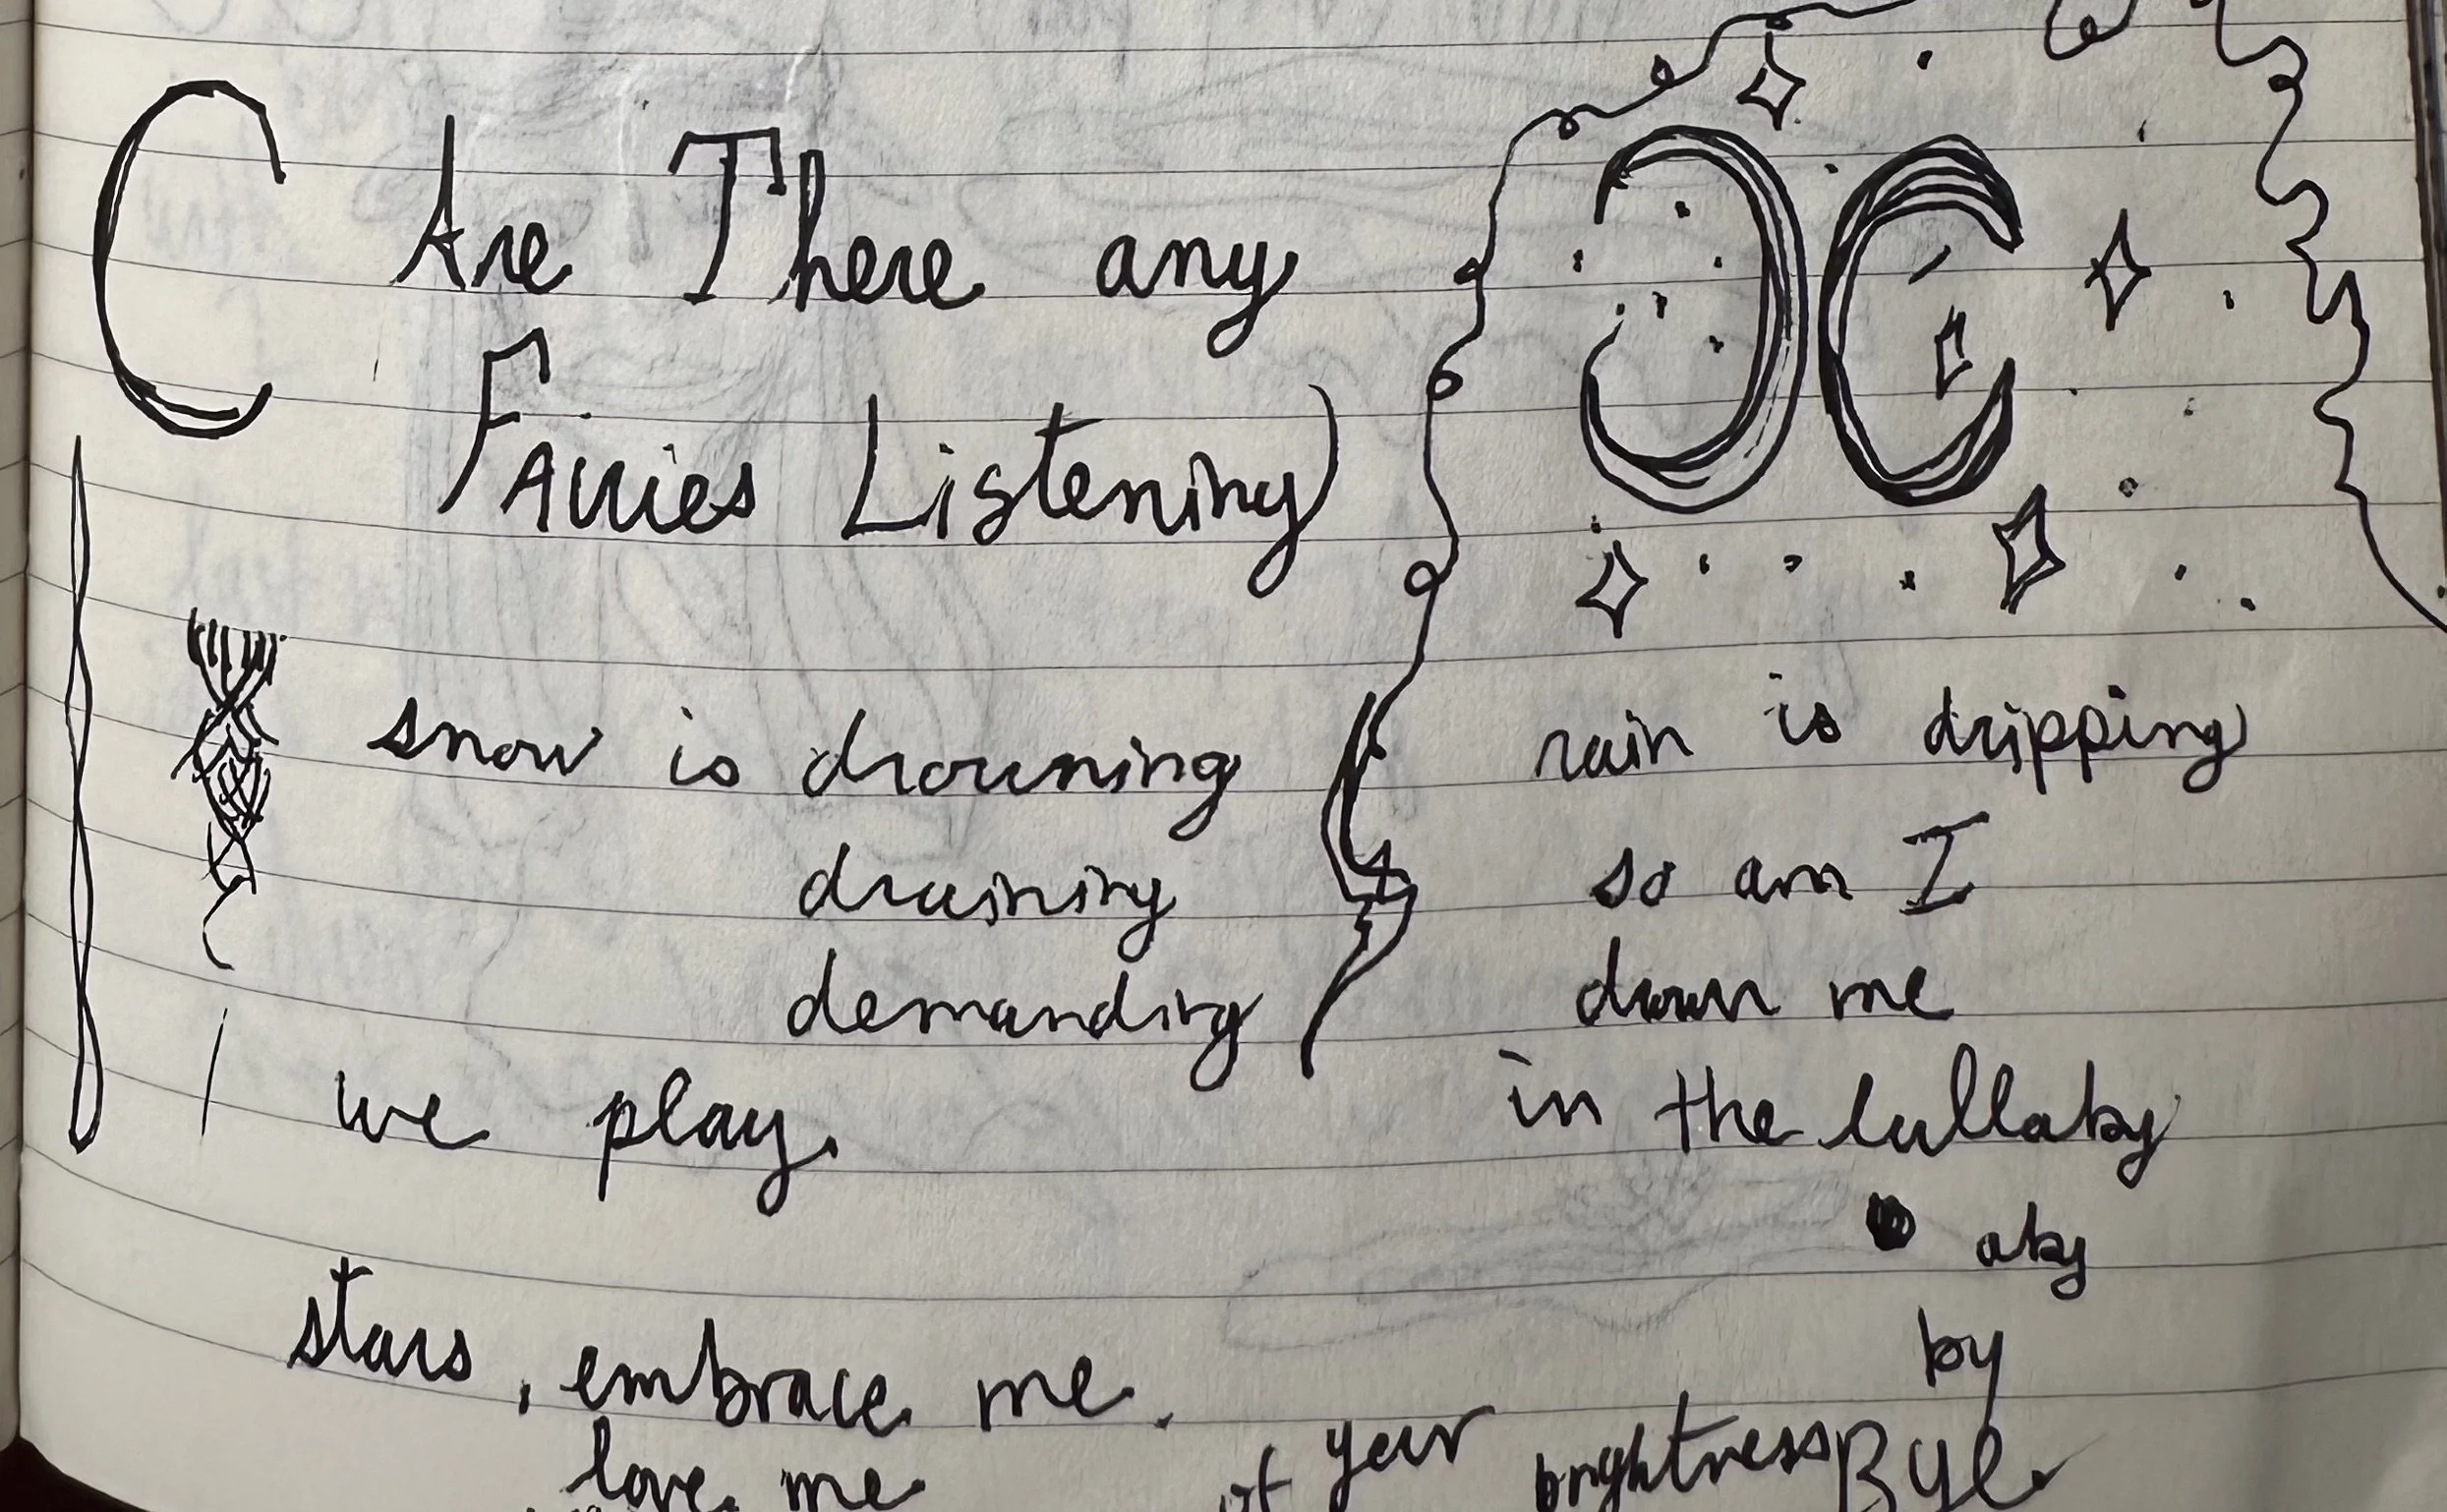 (Are There any
Fairies Listening)
snow is drowning
draining
demanding
we play.
rain is dripping
so am I
drown me
in the lullaby
aby
by
Bye
stars, embrace me.
love me
of your brightness